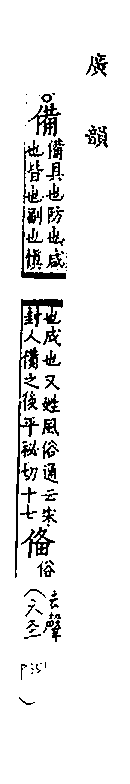 廣韻
備
備具也防也咸
也皆也副也慎
也成也又姓風俗通云宋
封人備之後平祕切十七
俻
俗
去聲
P351